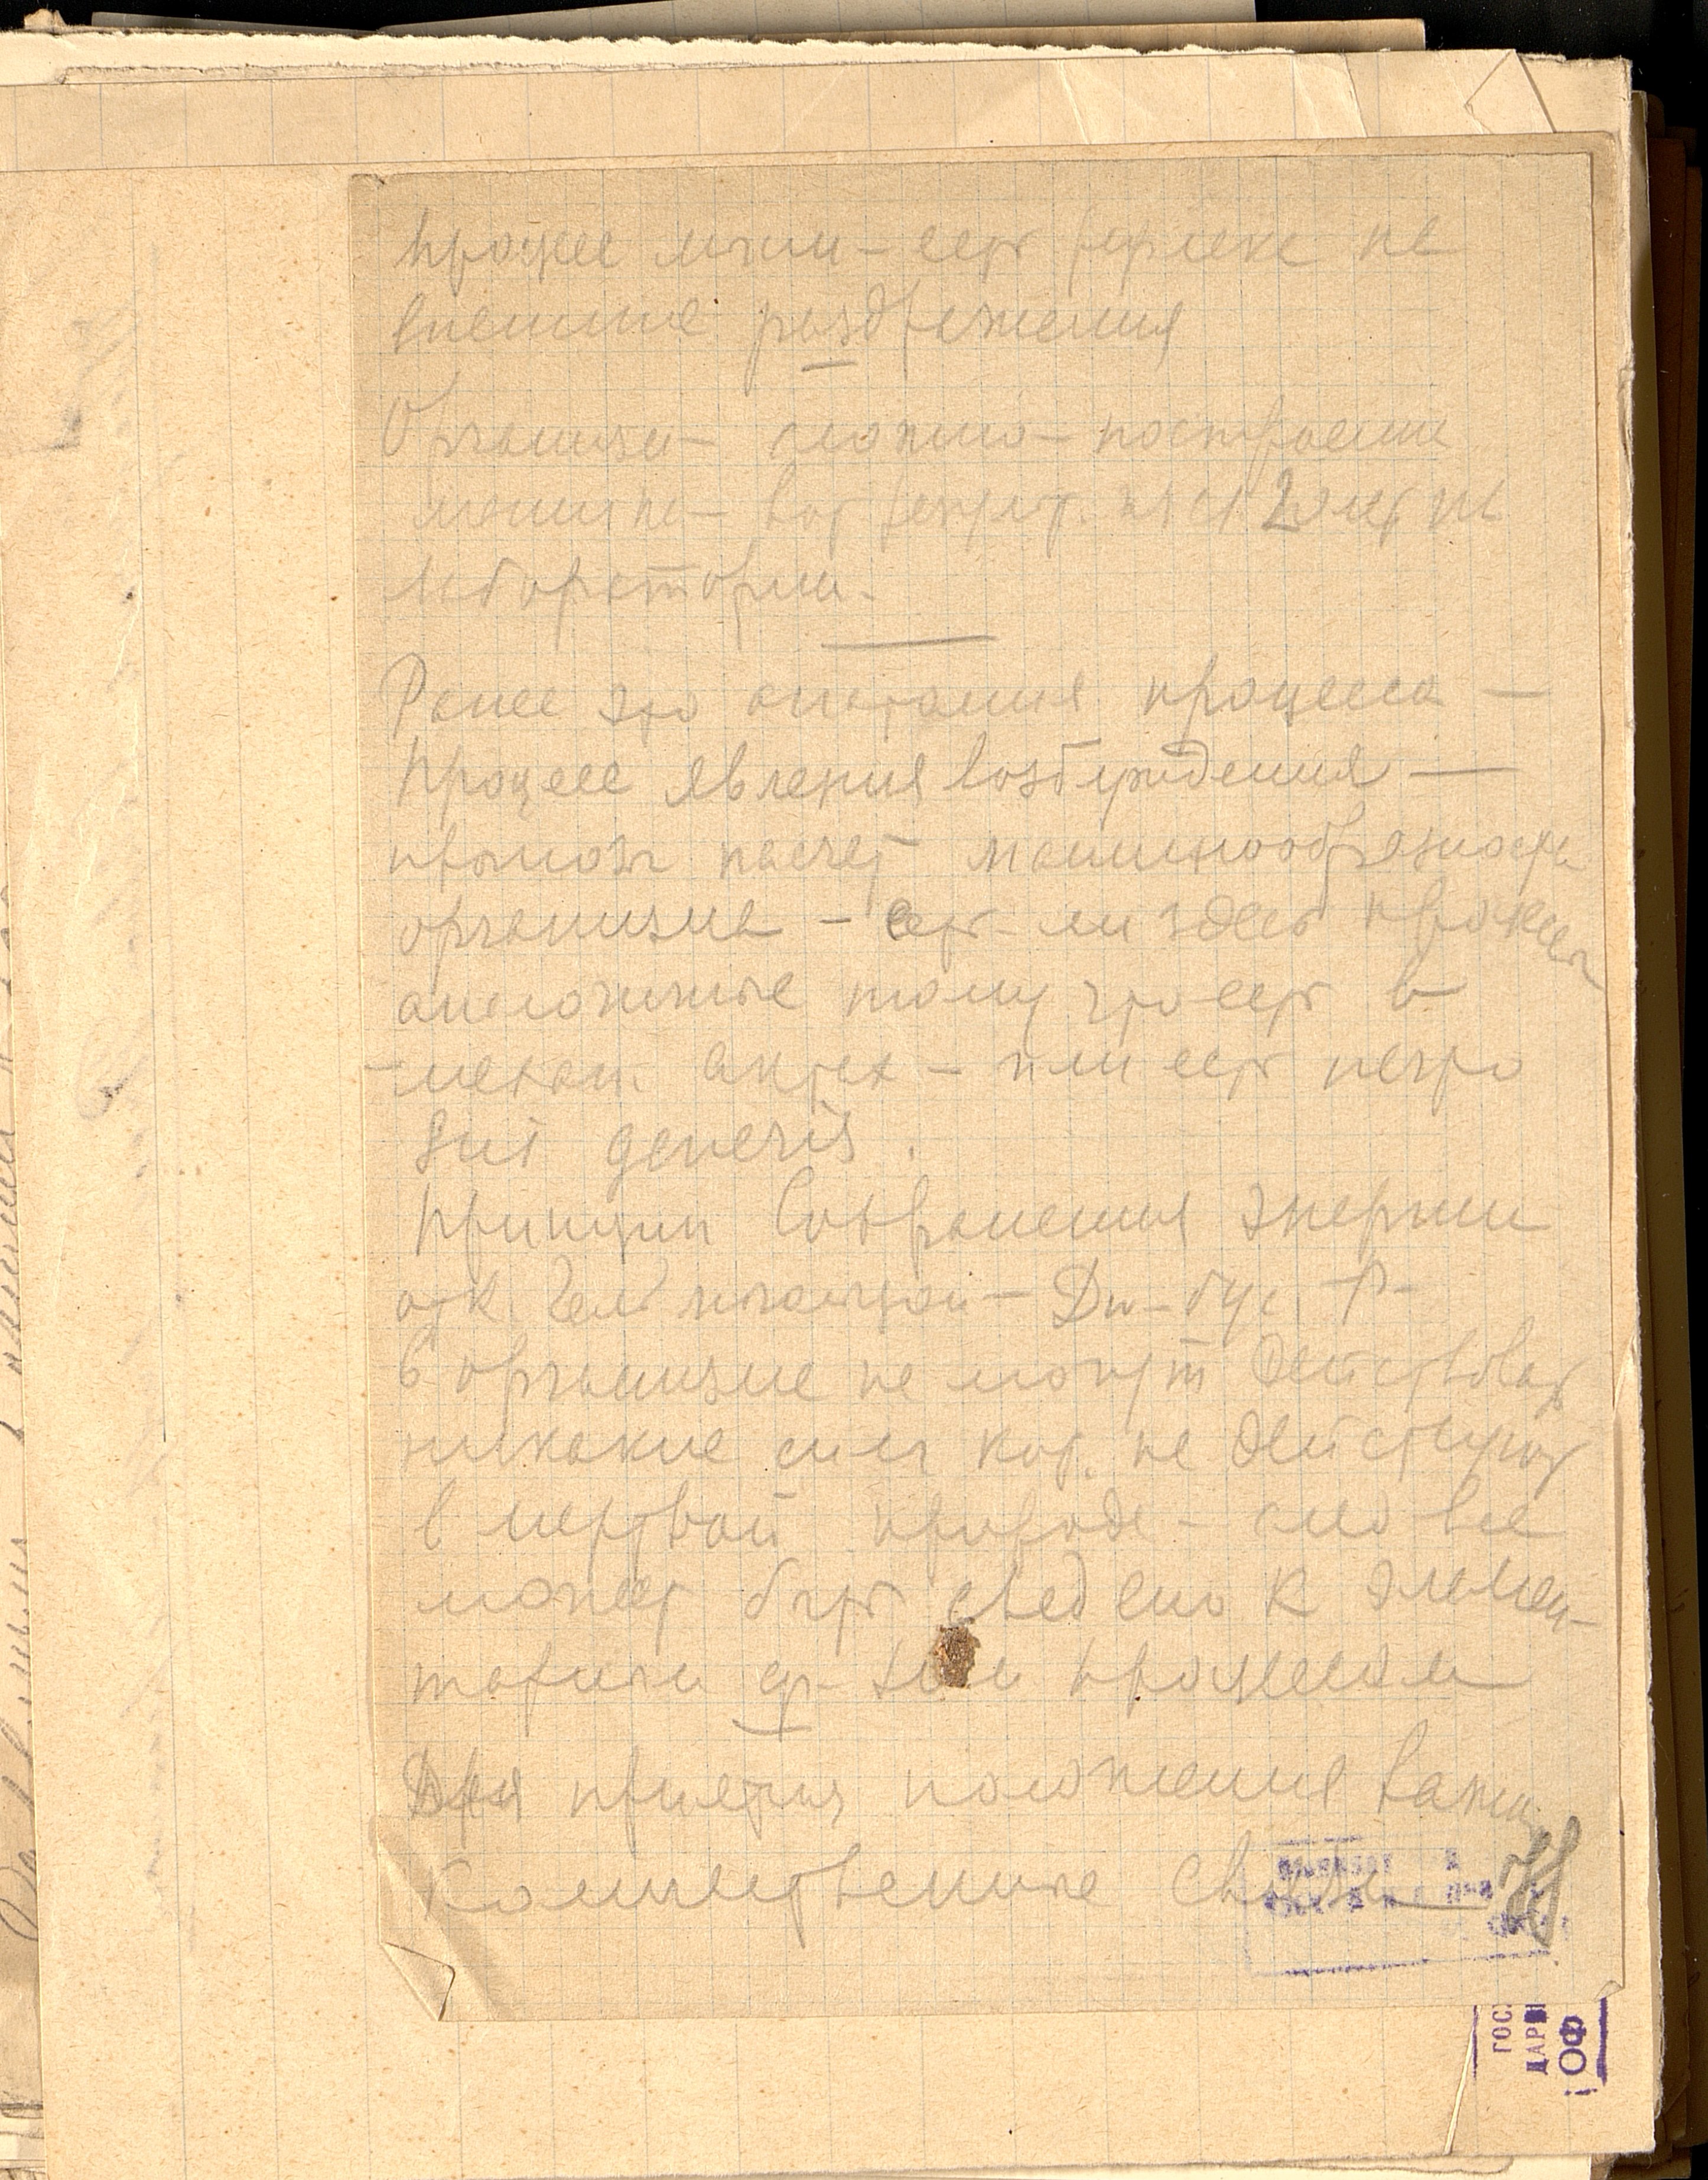 процесс мысли - есть рефлекс на
внешние раздражения
Организм - сложно - построенная
машина - вот лет
лаборатории.
Ранее это процесса —
Процесс явления возбуждения —
насчет машинообразности
организма - есть ли здесь процессы
аналогичные тому что есть в
механ. актах - или есть нечто
sui generis.
Принцип Сохранения энергии
отк. Гельмгольцем - Дю-буа Р-
В организме не могут действовать
никакие силы кот. не действуют
в мертвой природе - след все
может быть сведено к элемен-
тарным процессам
Для принятия положения важны
Количественные связи
ГОС.
ДАРВ
ОФ